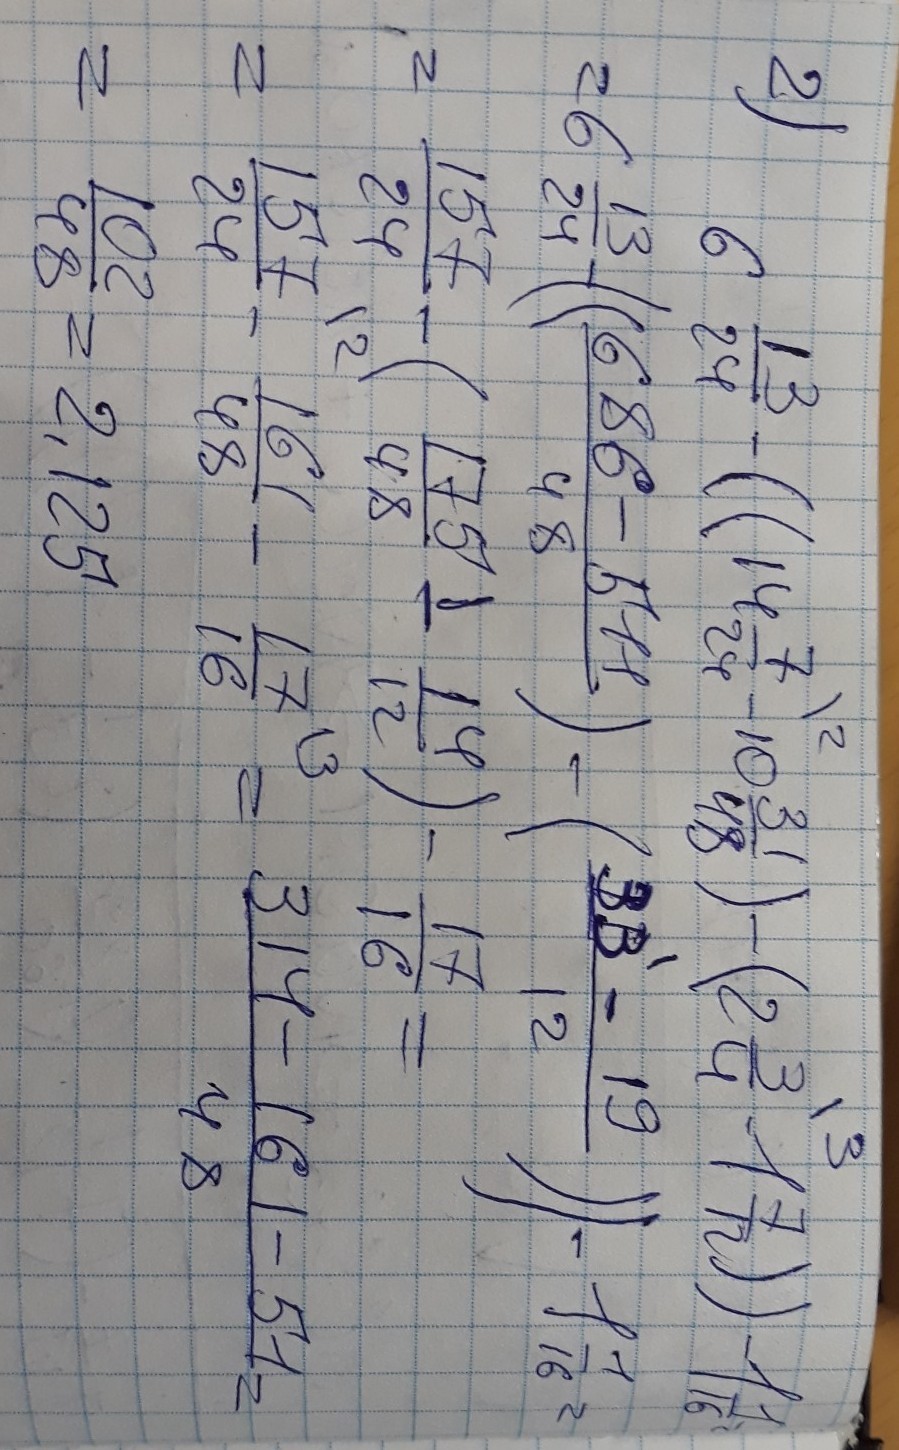 2) 6 13/24 - ((14 7/24 \2 - 10 31/48) - (2 3/4 \3 - 1 7/12)) - 1 1/16
= 6 13/24 - ((686 - 511)/48) - ((33 - 19)/12)) - 1 1/16 =
= 157/24 - (175/48 - 14/12) - 17/16 =
= 157/24 \2 - 161/48 - 17/16 \3 = (314 - 161 - 51)/48 =
= 102/48 = 2,125